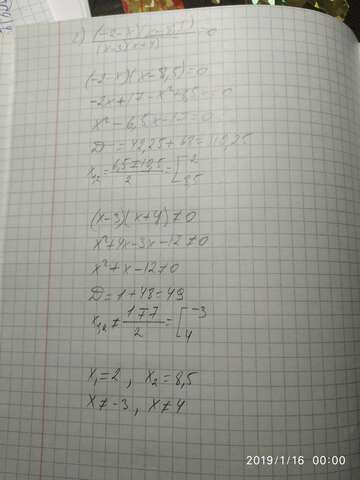 (-2-x)(x-8,5)/(x-3)(x+4) = 0
(-2-x)(x-8,5)=0
-2x+17-x²+8,5x=0
x²-6,5x-17=0
D = 42,25+68=110,25
x₁,₂ = (6,5±10,5)/2 = [-2 8,5
(x-3)(x+4)≠0
x²+4x-3x-12≠0
x²+x-12≠0
D=1+48=49
x₁,₂ ≠ (1±7)/2 = [-3 4
x₁=2, x₂=8,5
x≠-3, x≠4
2019/1/16 00:00